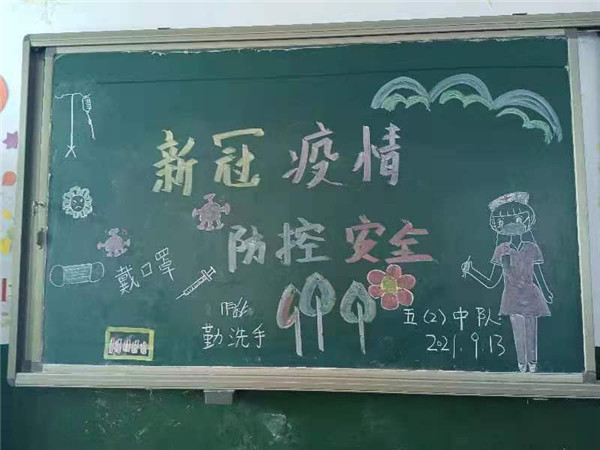 新冠疫情
防控安全
戴口罩
勤洗手
五(2)中队
2021.9.13